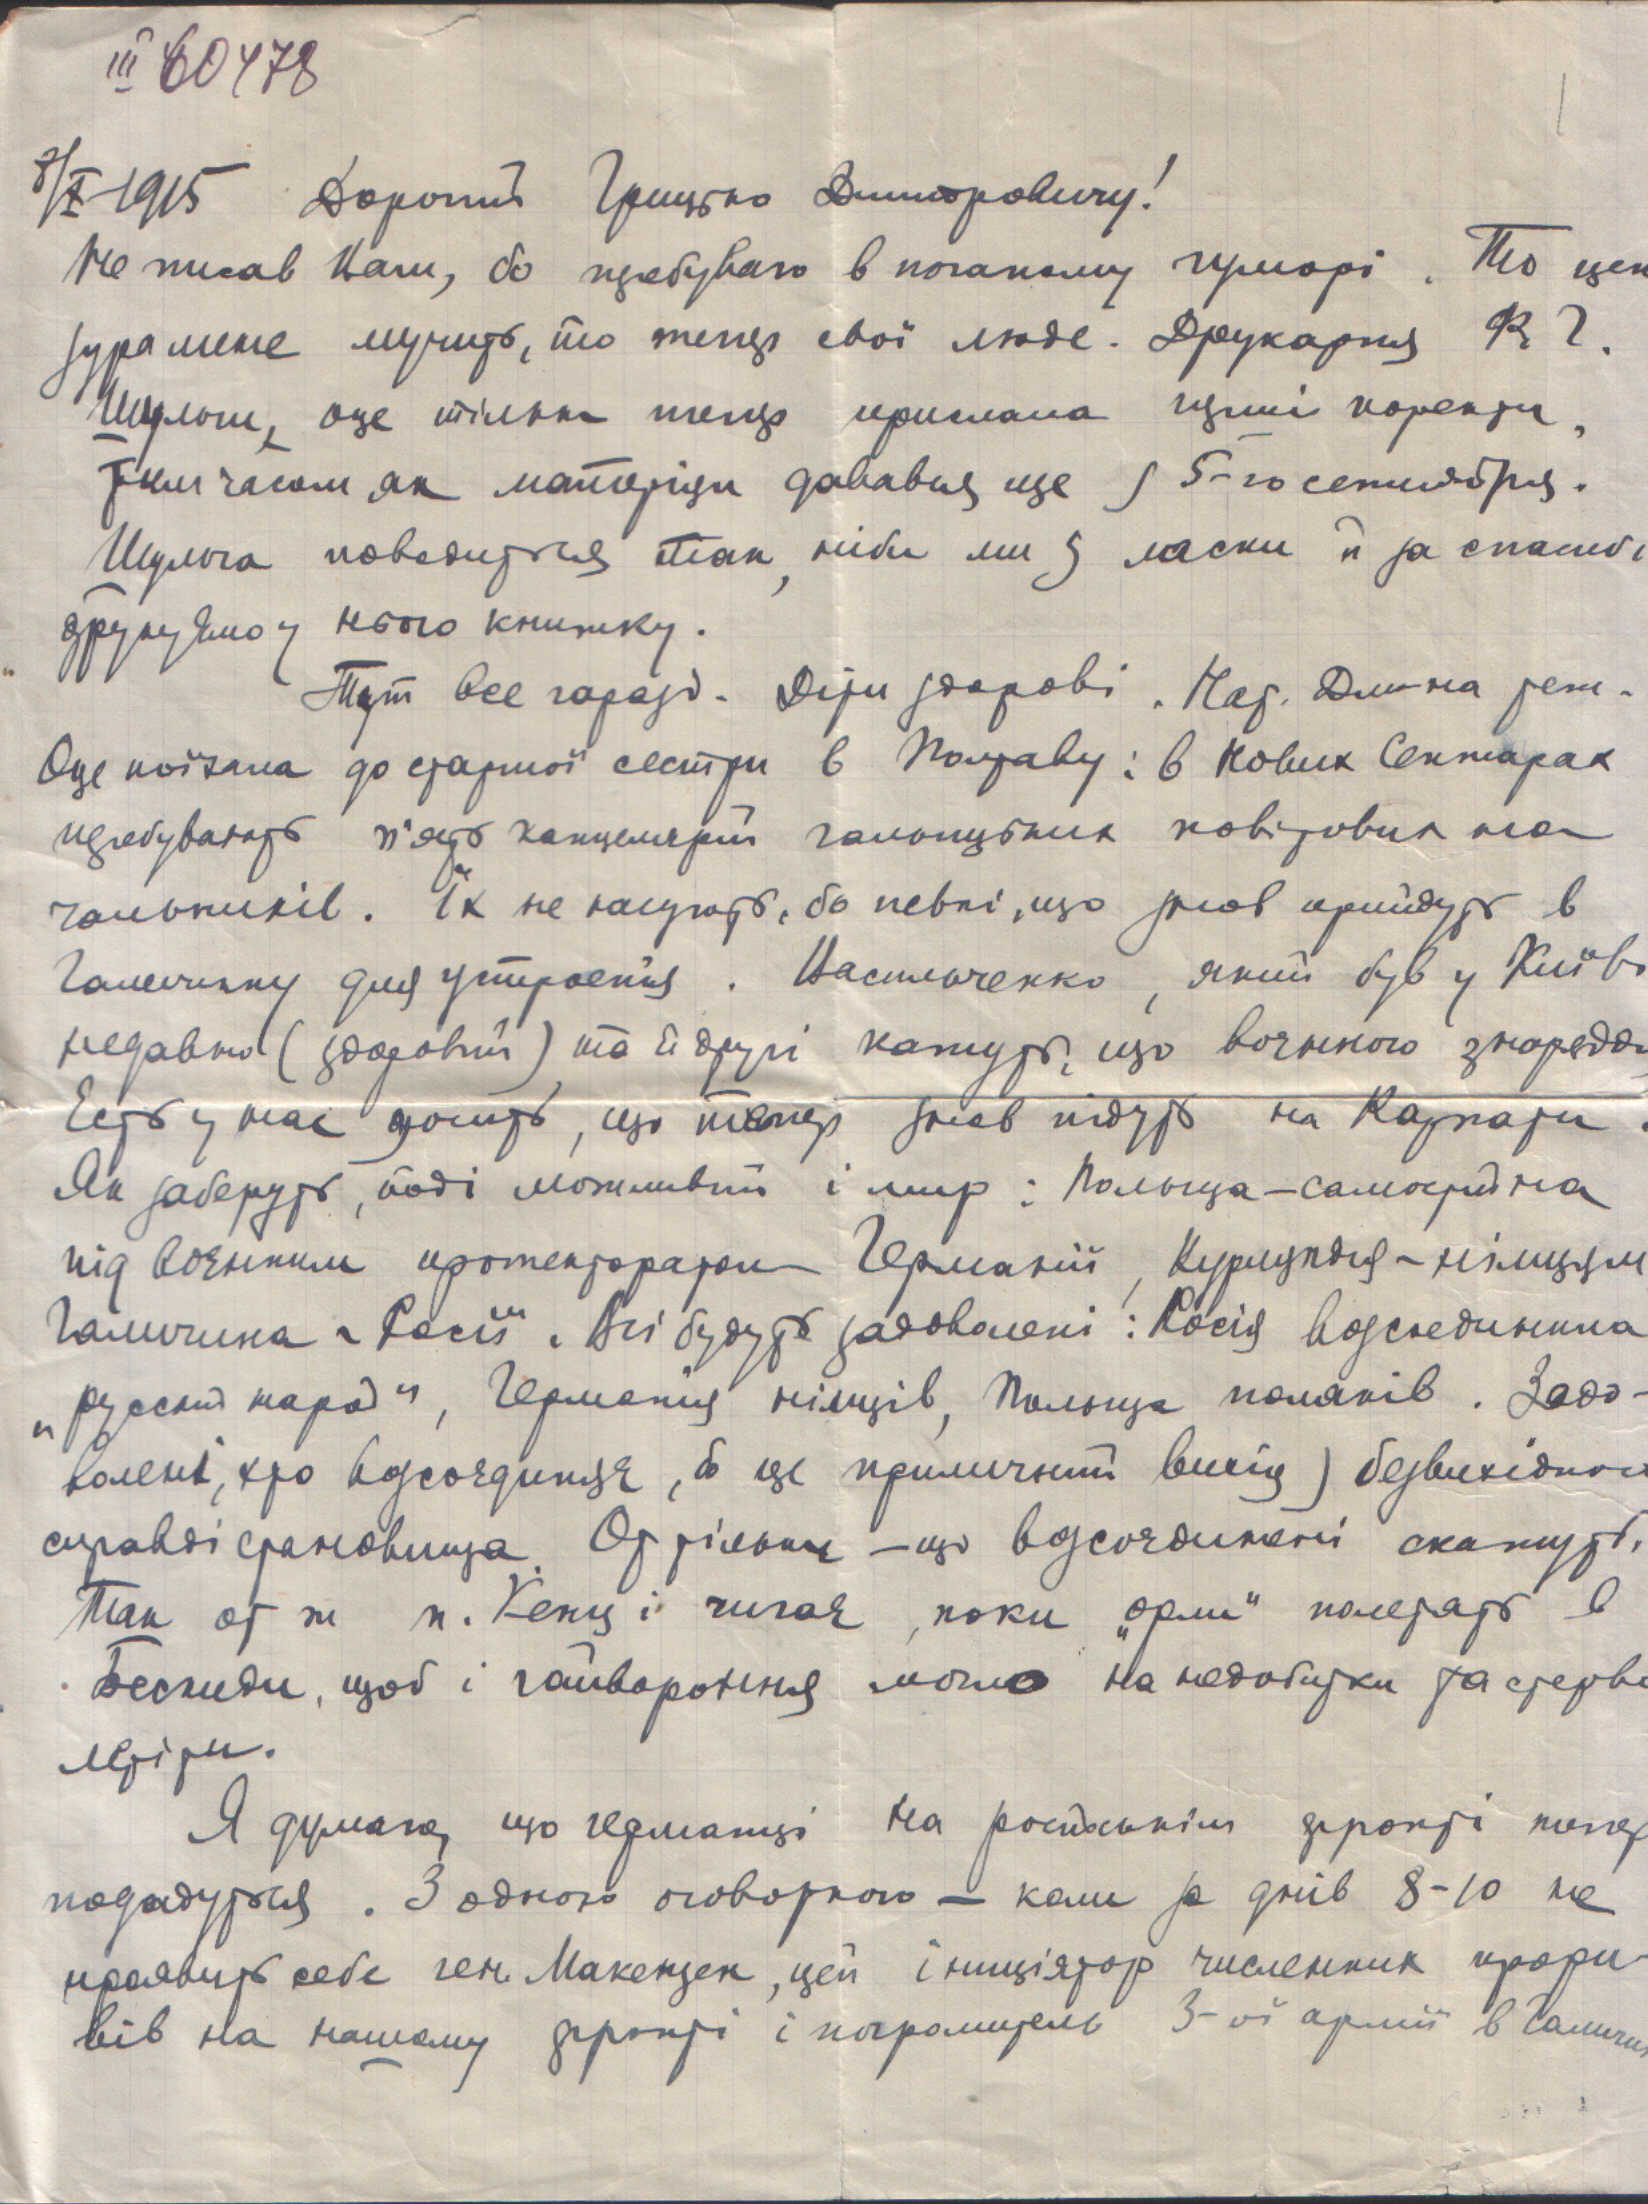 III 60478
8/X 1915 Дорогий Грицько Дмитровичу!
Не писав Вам, бо пробуваю в поганому гуморі. То цен
зура мене мучить, то тепер свої люде. Друкарня
Шульги, оце тільки тепер прислала перші коректи,
тим часом як матеріял давався ще з 5-го сентября.
Шульга поводиться так, ніби ми з ласки й за спасибі
друкуємо у нього книжку.
Тут все гаразд. Діти здорові. Над. Дм-на теж.
Оце поїхала до старшої сестри в Полтаву: в Нових Сенжарах
пробувають п'ять канцелярій галицьких повітових на
чальників. Їх не касують, бо певні, що знов прийдуть в
Галичину для устроенія. Васильченко, який був у Київі
недавно (здоровий) та й другі кажуть, що воєнного знаряддя
Єсть у нас досить, що тепер знов підуть на Карпати.
Як заберуть, тоді можливий і мир: Польща – самостійна
під воєнним протекторатом Германії, Курляндія – німцям
Галичина – Росії. Всі будуть задоволені: Росія возсоединила
„русскій народ", Германія німців, Польща поляків. Задо-
волені, хто возсоєдиняє, бо це приличний вихід з безвихідного
справді становища. От тільки – що возсоєдинені скажуть.
Так от ж п. Кенц і чигає, поки „орли" полетять в
Бескиди, щоб і гайвороння могло на недобитки та стерво
летіти.
Я думаю, що германці на російськім фронті тепер
подадуться. З одною оговоркою – коли за днів 8-10 не
проявить себе ген. Макензен, цей ініціятор численних прори-
вів на нашому фронті і погромитель 3-ої армії в Галичині